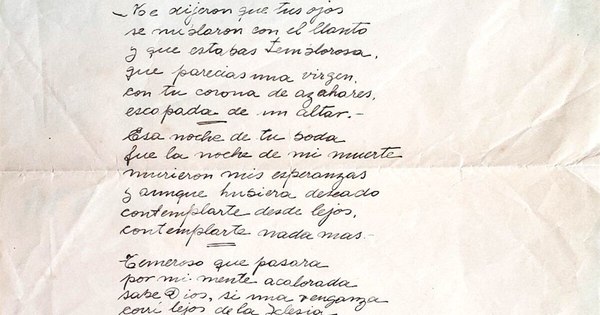 - Me dijeron que tus ojos
se nublaron con el llanto
y que estabas temblorosa,
que parecias una virgen,
con tu corona de azahares,
escapada de un altar.-
Esa noche de tu boda
fue la noche de mi muerte
murieron mis esperanzas
y aunque hubiera deseado
contemplarte desde lejos,
contemplarte nada mas.-
Temeroso que pasara
por mi mente acalorada
sabe Dios, si una venganza
corri lejos de la Iglesia